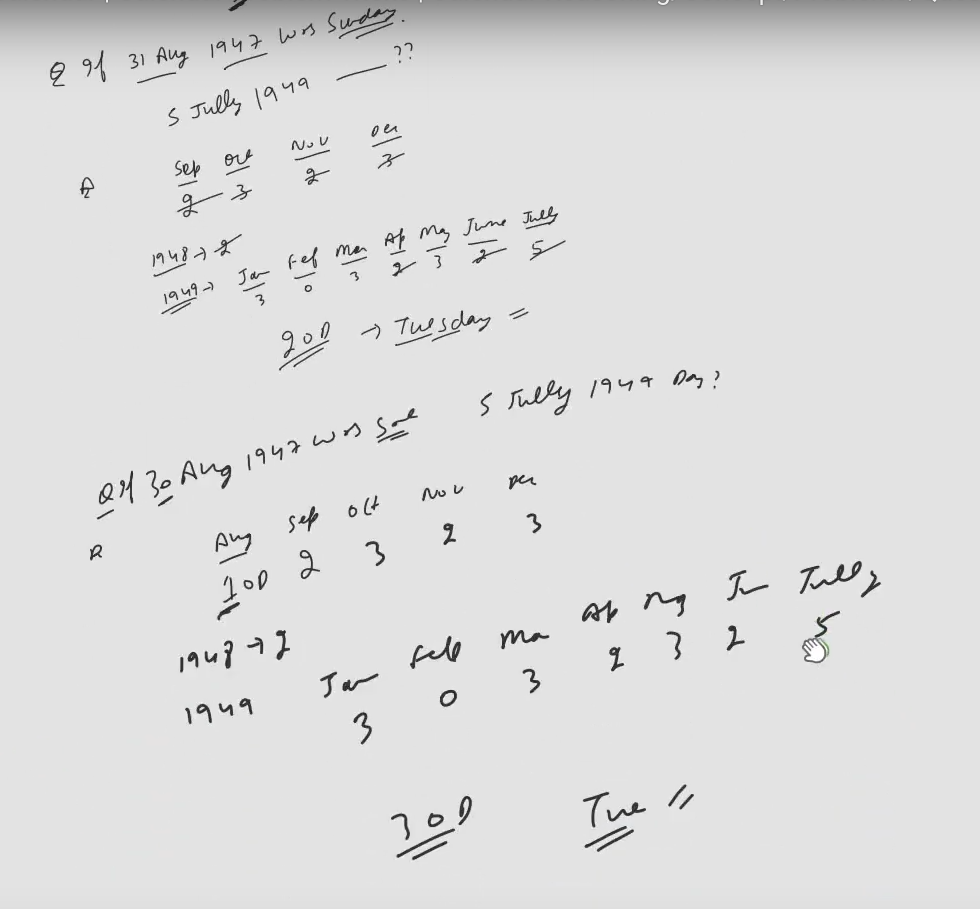 Q If 31 Aug 1947 was Sunday.
5 Jully 1949 — ??
A Sep Oct Nov Dec
2 3 2 3
1948 → 2
1949 → Jan Feb Mar Ap May June Jully
3 0 3 2 3 2 5
2 OD → Tuesday =
Q If 30 Aug 1947 was Sat 5 Jully 1949 Day?
Aug Sep Oct Nov Dec
1 OD 2 3 2 3
1948 → 2
1949 Jan Feb Ma Ap My Jn Jully
3 0 3 2 3 2 5
3 OD Tue //